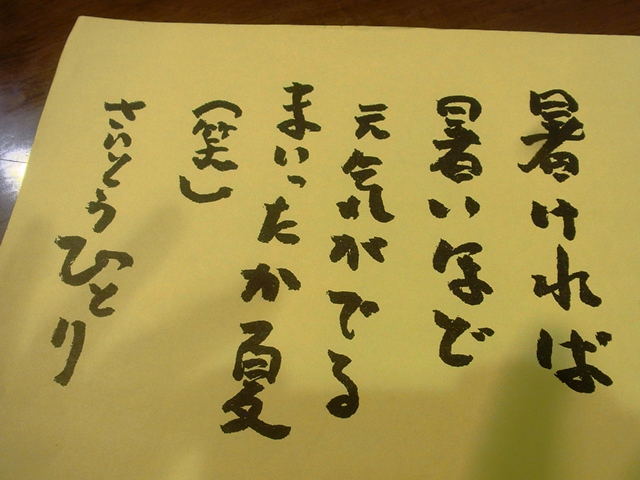 暑ければ
暑いほど
元気がでる
まいったか夏
(笑)
さいとうひとり